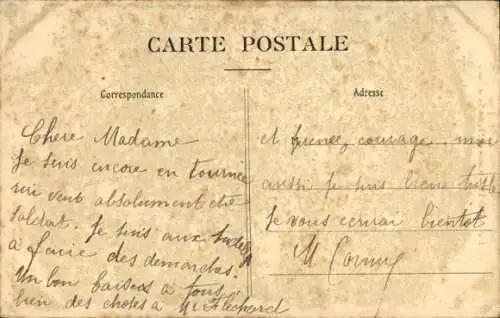 CARTE POSTALE
Correspondance
Adresse
Chere Madame
Je suis encore en tournée
veut absolument etre
soldat. Je suis aux
à faire des demarches.
Un bon baisers à tous
bien des choses a Mr Flechard
et prenez courage, moi
aussi je suis bien triste
Je vous ecrirai bientot
M